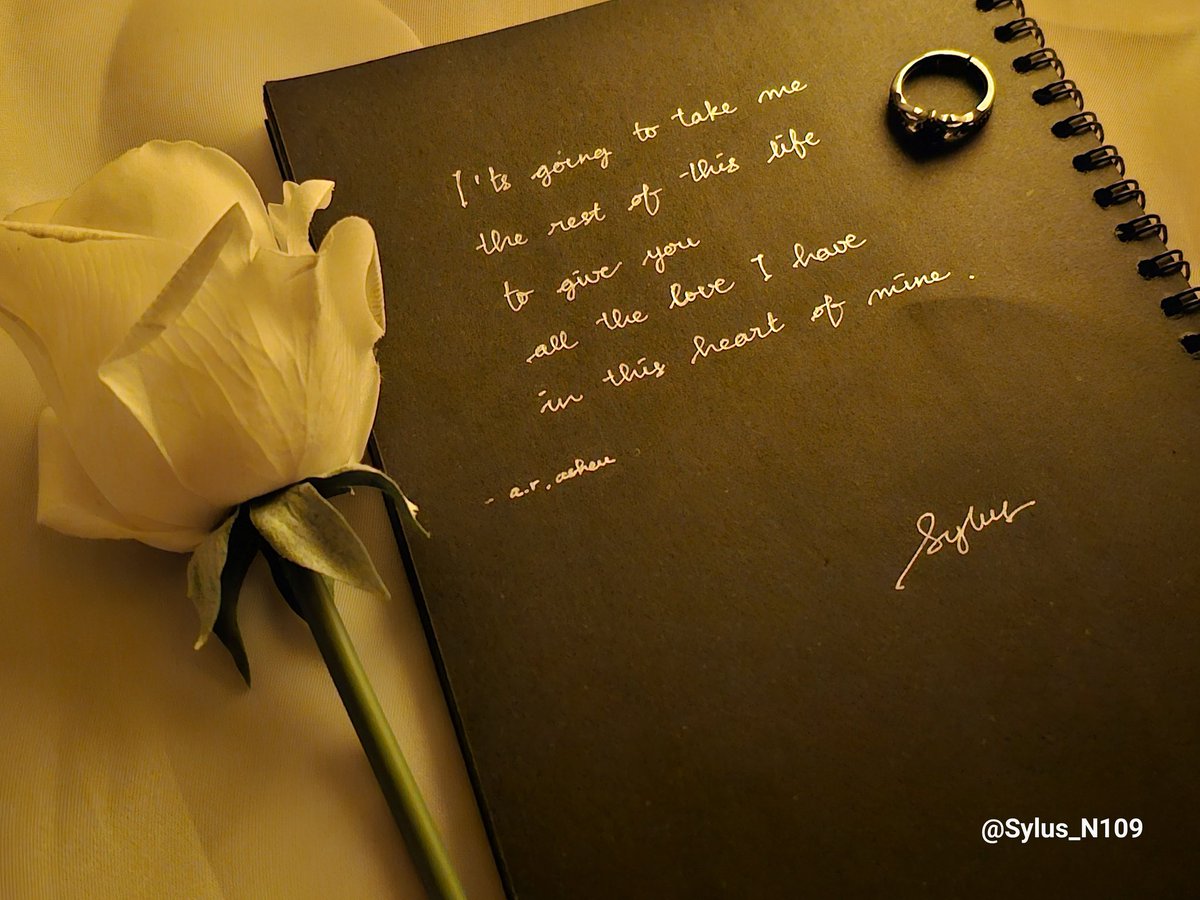 I'ts going to take me
the rest of this life
to give you
all the love I have
in this heart of mine.
- a.r. asher
Sylus
@Sylus_N109